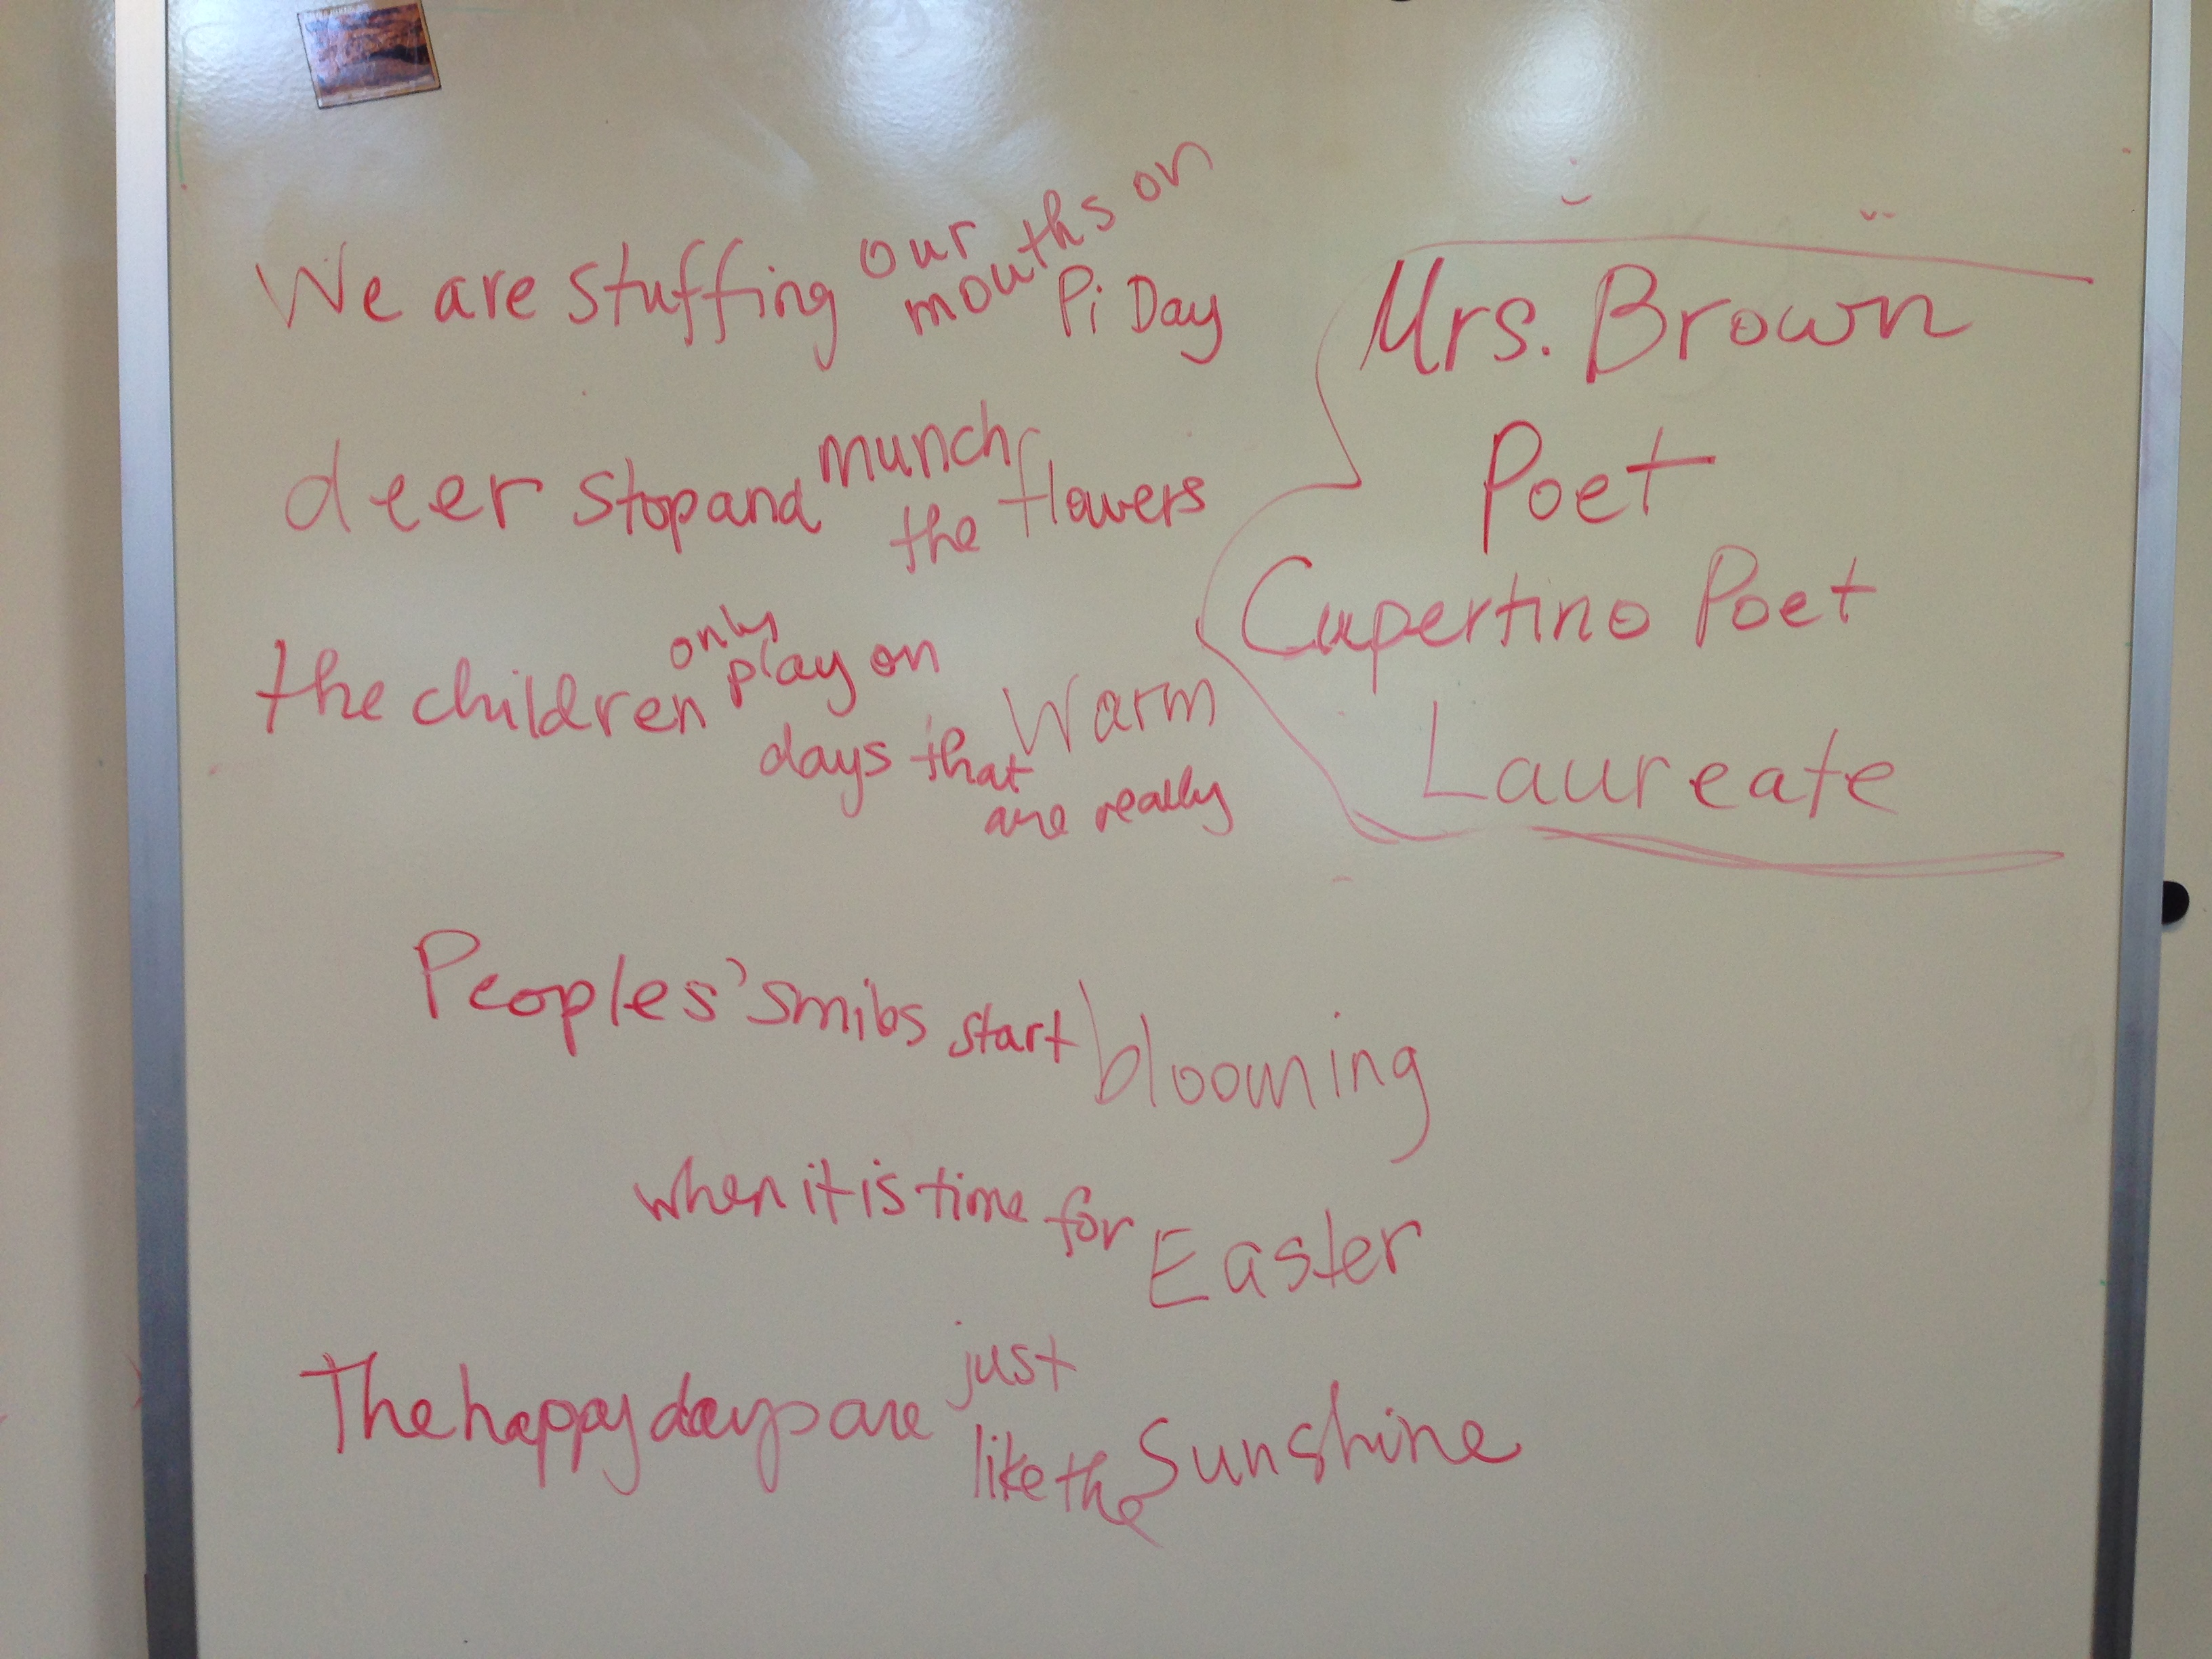 We are stuffing our mouths on Pi Day
deer stop and munch the flowers
the children only play on days that are really Warm
Peoples' smiles start blooming
when it is time for Easter
The happy days are just like the Sunshine
Mrs. Brown
Poet
Cupertino Poet
Laureate